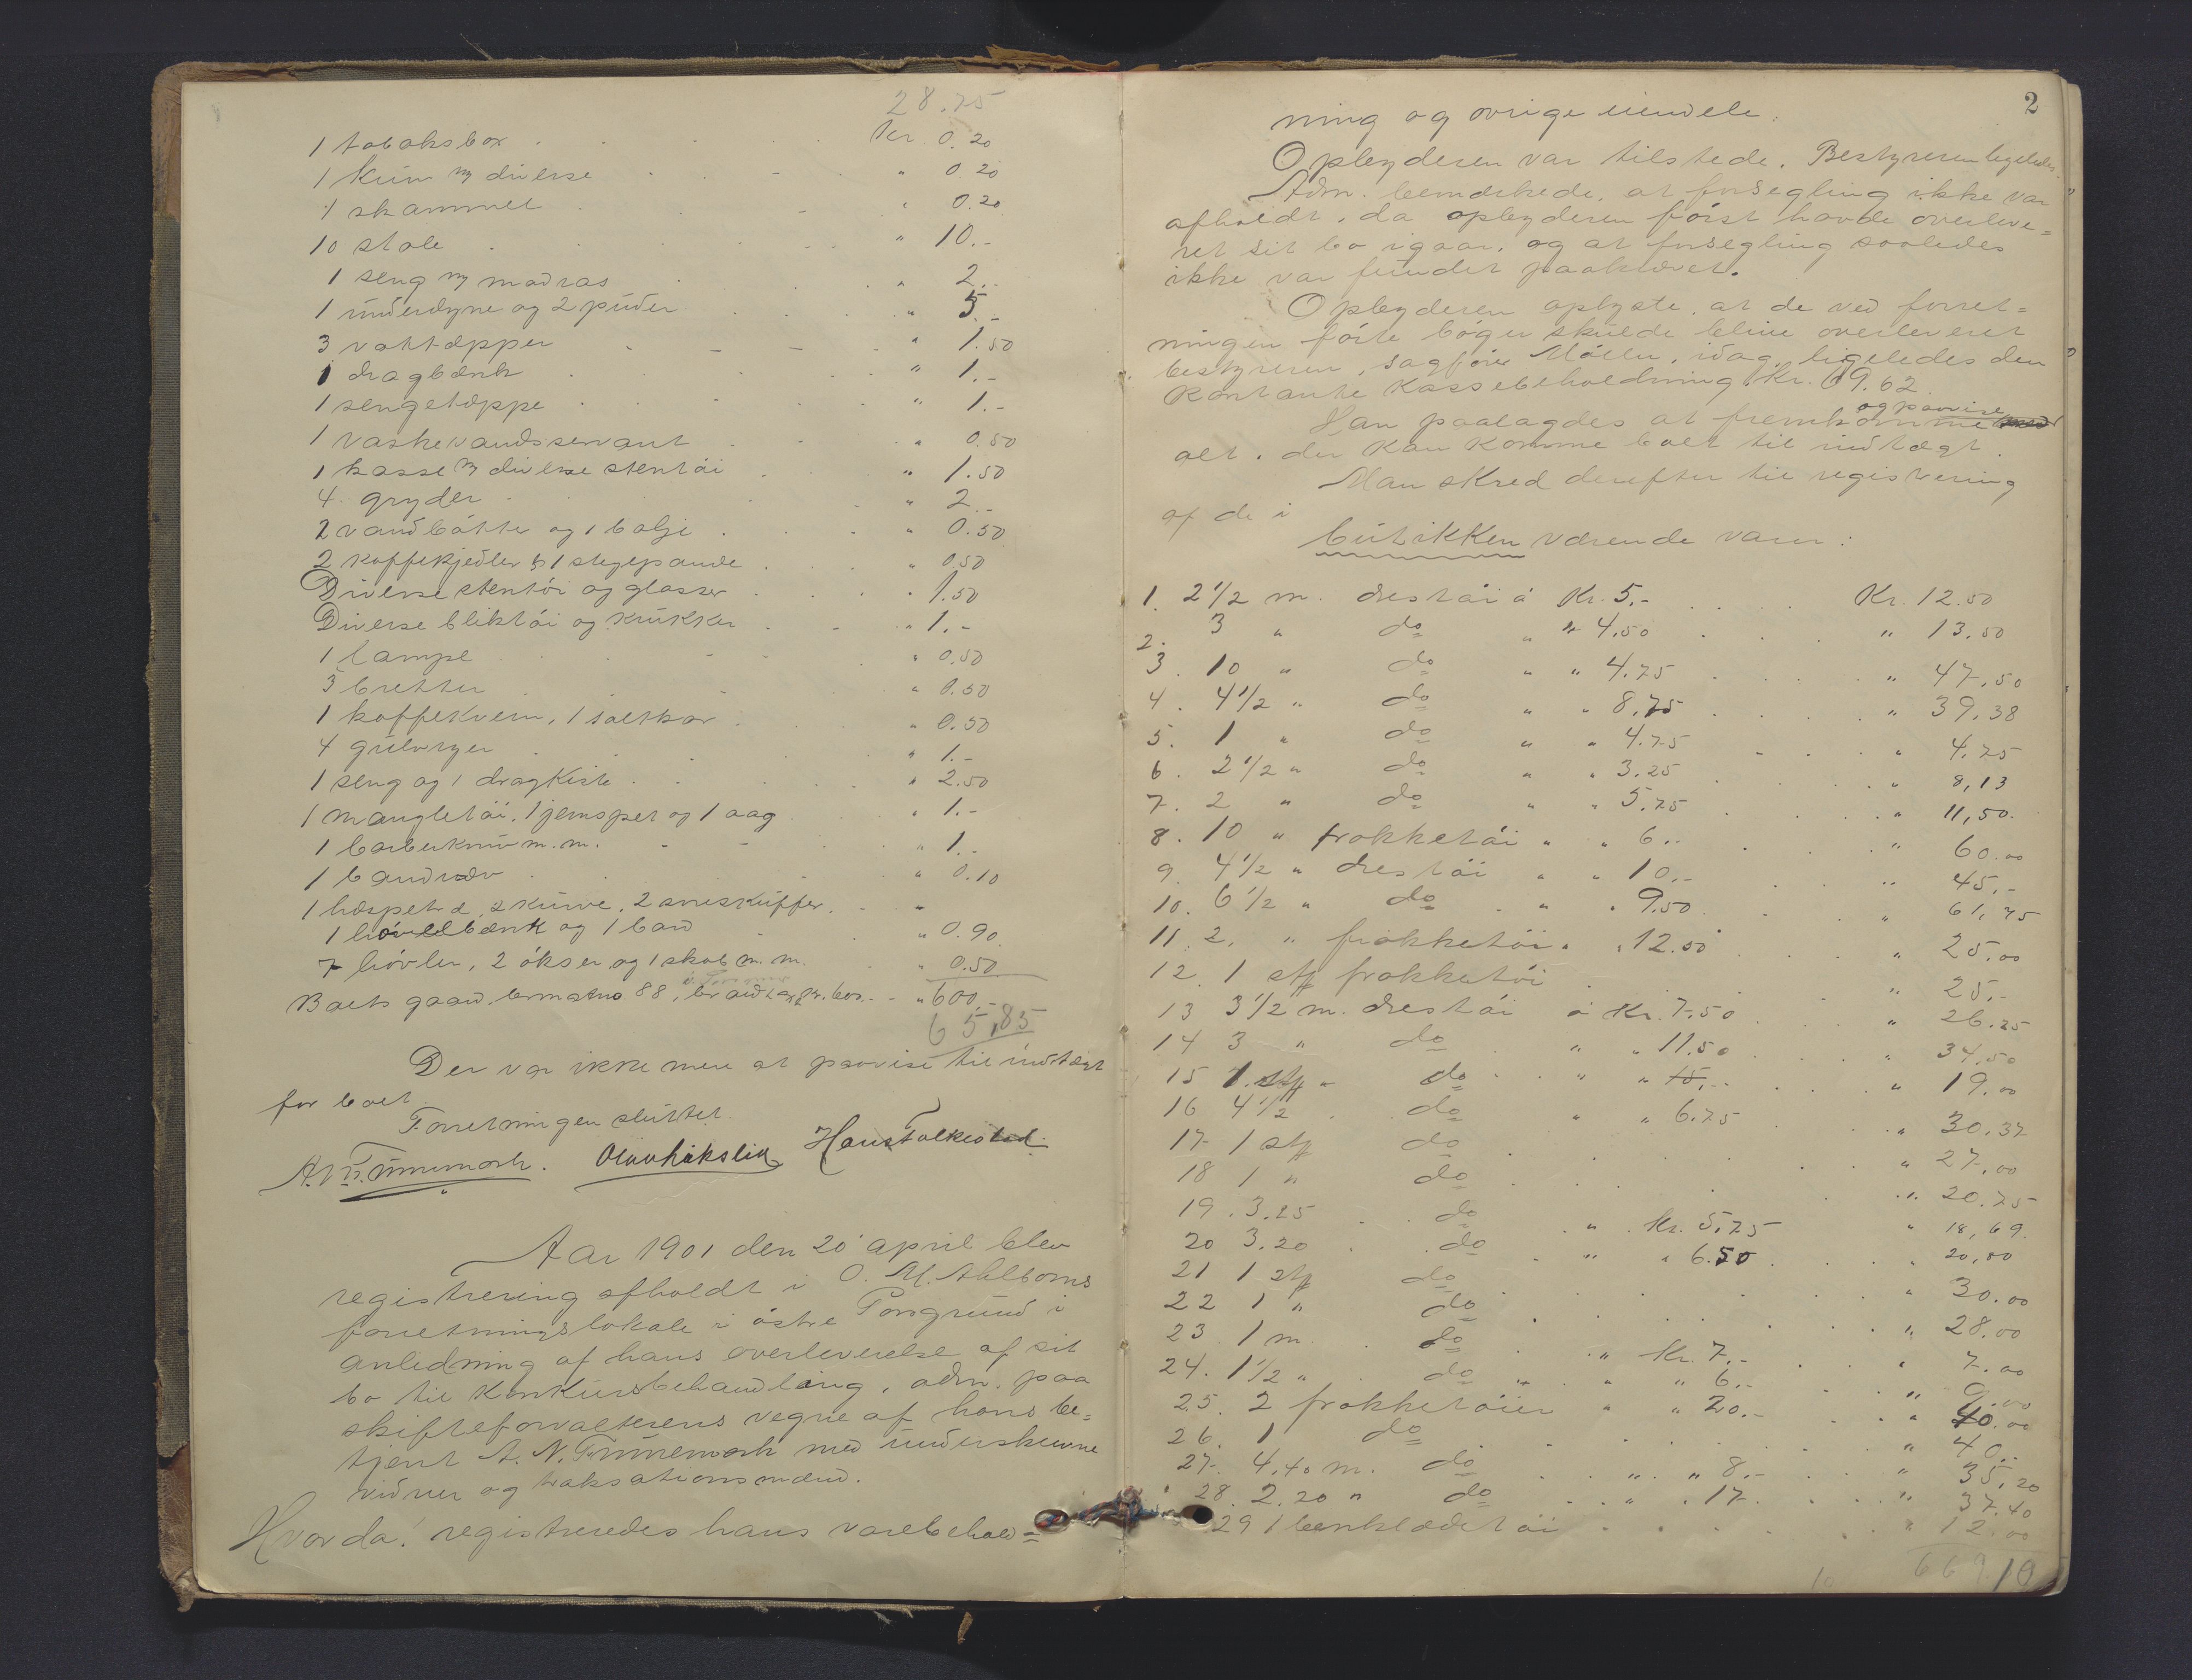 28.75
1 tobaksbox . . . . . Kr. 0.20
1 kurv m/ diverse . . . " 0.20
1 skammel . . . " 0.20
10 stole . . . . " 10.-
1 seng m/ madras . . . " 2.-
1 underdyne og 2 puder . . . " 5.-
3 vattæpper - - - " 1.50
1 dragbænk . . . . " 1.-
1 sengetæppe . . . . " 1.-
1 vaskevandsservant . . . " 0.50
1 kasse m/ diverse stentöi . . " 1.50
4 gryder . . . . " 2.-
2 vandbötter og 1 balje . . . " 0.50
2 kaffekjedler og 1 stegepande . . . " 0.50
Diverse stentöi og glasser . . . " 1.50
Diverse bliktöi og krukker . . . " 1.-
1 lampe . . . . " 0.50
3 bretter . . . . " 0.50
1 kaffekvern, 1 saltkar . . . " 0.50
4 gulvryer . . . . " 1.-
1 seng og 1 dragkiste . . . " 2.50
1 mangletöi, 1 jernspet og 1 aag . . " 1.-
1 barberkniv m.m. . . . " 1.-
1 baandvæv . . . . " 0.10
1 hæspetræ, 2 kurve, 2 sneskuffer . . "
1 hövelbænk og 1 baad . . " 0.90
7 hövler, 2 ökser og 1 skab m.m. . . " 0.50
Boets gaard, brmatno. 88, brandtax kr. 600.- - " 600.-
65,85
Der var ikke mere at paavise til indtægt
for boet.
Forretningen sluttet.
A. N. Tømmernæsh. Hans Folkestad.
Aar 1901 den 20 april blev
registrering afholdt i O. M. Ahlboms
forretningslokale i östre Porsgrund i
anledning af hans overleverelse af sit
bo til konkursbehandling, adm. paa
skifteforvalterens vegne af hans be=
tjent A. N. med underskrevne
vidner og taksationsmænd.
Hvorda! registreredes hans varebehold=
2
ning og övrige eiendele.
Opbyderen var tilstede. Bestyreren ligeledes.
Adm. bemærkede, at forsegling ikke var
afholdt, da opbyderen först havde overleve=
ret sit bo igaar, og at forsegling saaledes
ikke var fundet paakrævet.
Opbyderen oplyste, at de ved forret=
ningen förte böger skulde blive overleveret
bestyreren, sagförer Möller, idag, ligeledes den
kontante kassebeholdning Kr. 69.62
og paavise
Han paalagdes at fremkomme
alt, der kan komme boet til indtægt.
Man skred derefter til registrering
af de i
butikken værende varer:
1. 2 1/2 m. drestöi á Kr. 5.- . . . Kr. 12.50
2. 3 " do " " 4.50 . . . " 13.50
3. 10 " do " " 4.75 . . . " 47.50
4. 4 1/2 " do " " 8.75 . . . " 39.38
5. 1 " do " " 4.75 . . . " 4.75
6. 2 1/2 " do " " 3.25 . . . " 8,13
7. 2 " do " " 5.75 . . . " 11,50.
8. 10 " frakketöi " " 6.- . . . " 60.00
9. 4 1/2 " drestöi " " 10.- . . . " 45.-
10. 6 1/2 " do " " 9.50 . . . " 61,75
11. 2. " frakketöi " " 12.50 . . . " 25.00
12. 1 stf frakketöi . . . " 25.-
13 3 1/2 m. drestöi á Kr. 7.50 . . " 26.25
14 3 " do " " 11.50 . . . " 34.50
15 1 stf " do " " 15.- . . . " 19.00
16 4 1/2 . do " " 6.75 . . . " 30.37
17 1 stf do . . . . " 27.00
18 1 " do . . . . " 20.75
19. 3.25 . . do . " Kr. 5,75 " 18,69.
20 3.20 . . do . " " 6.50 . . . " 20,80
21 1 stf do . . . . " 30.00
22 1 " do . . . . " 28.00
23 1 m. . do . . " Kr. 7.- . . " 7.00
24. 1 1/2 " . do " " " 6.- . . " 9.00
25. 2 frakketöier " " 20.- . . " 40.00
26. 1 do . . . . " 40.-
27. 4.40 m. do . . " " 8.- . . " 35,20
28. 2.20 " do . . " " 17. . . " 37.40
29 1 benklædetöi . . . . " 12.00
10 10